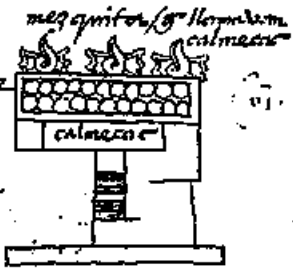 mezquitas/q̃ llamavam
calmecac
calmecac